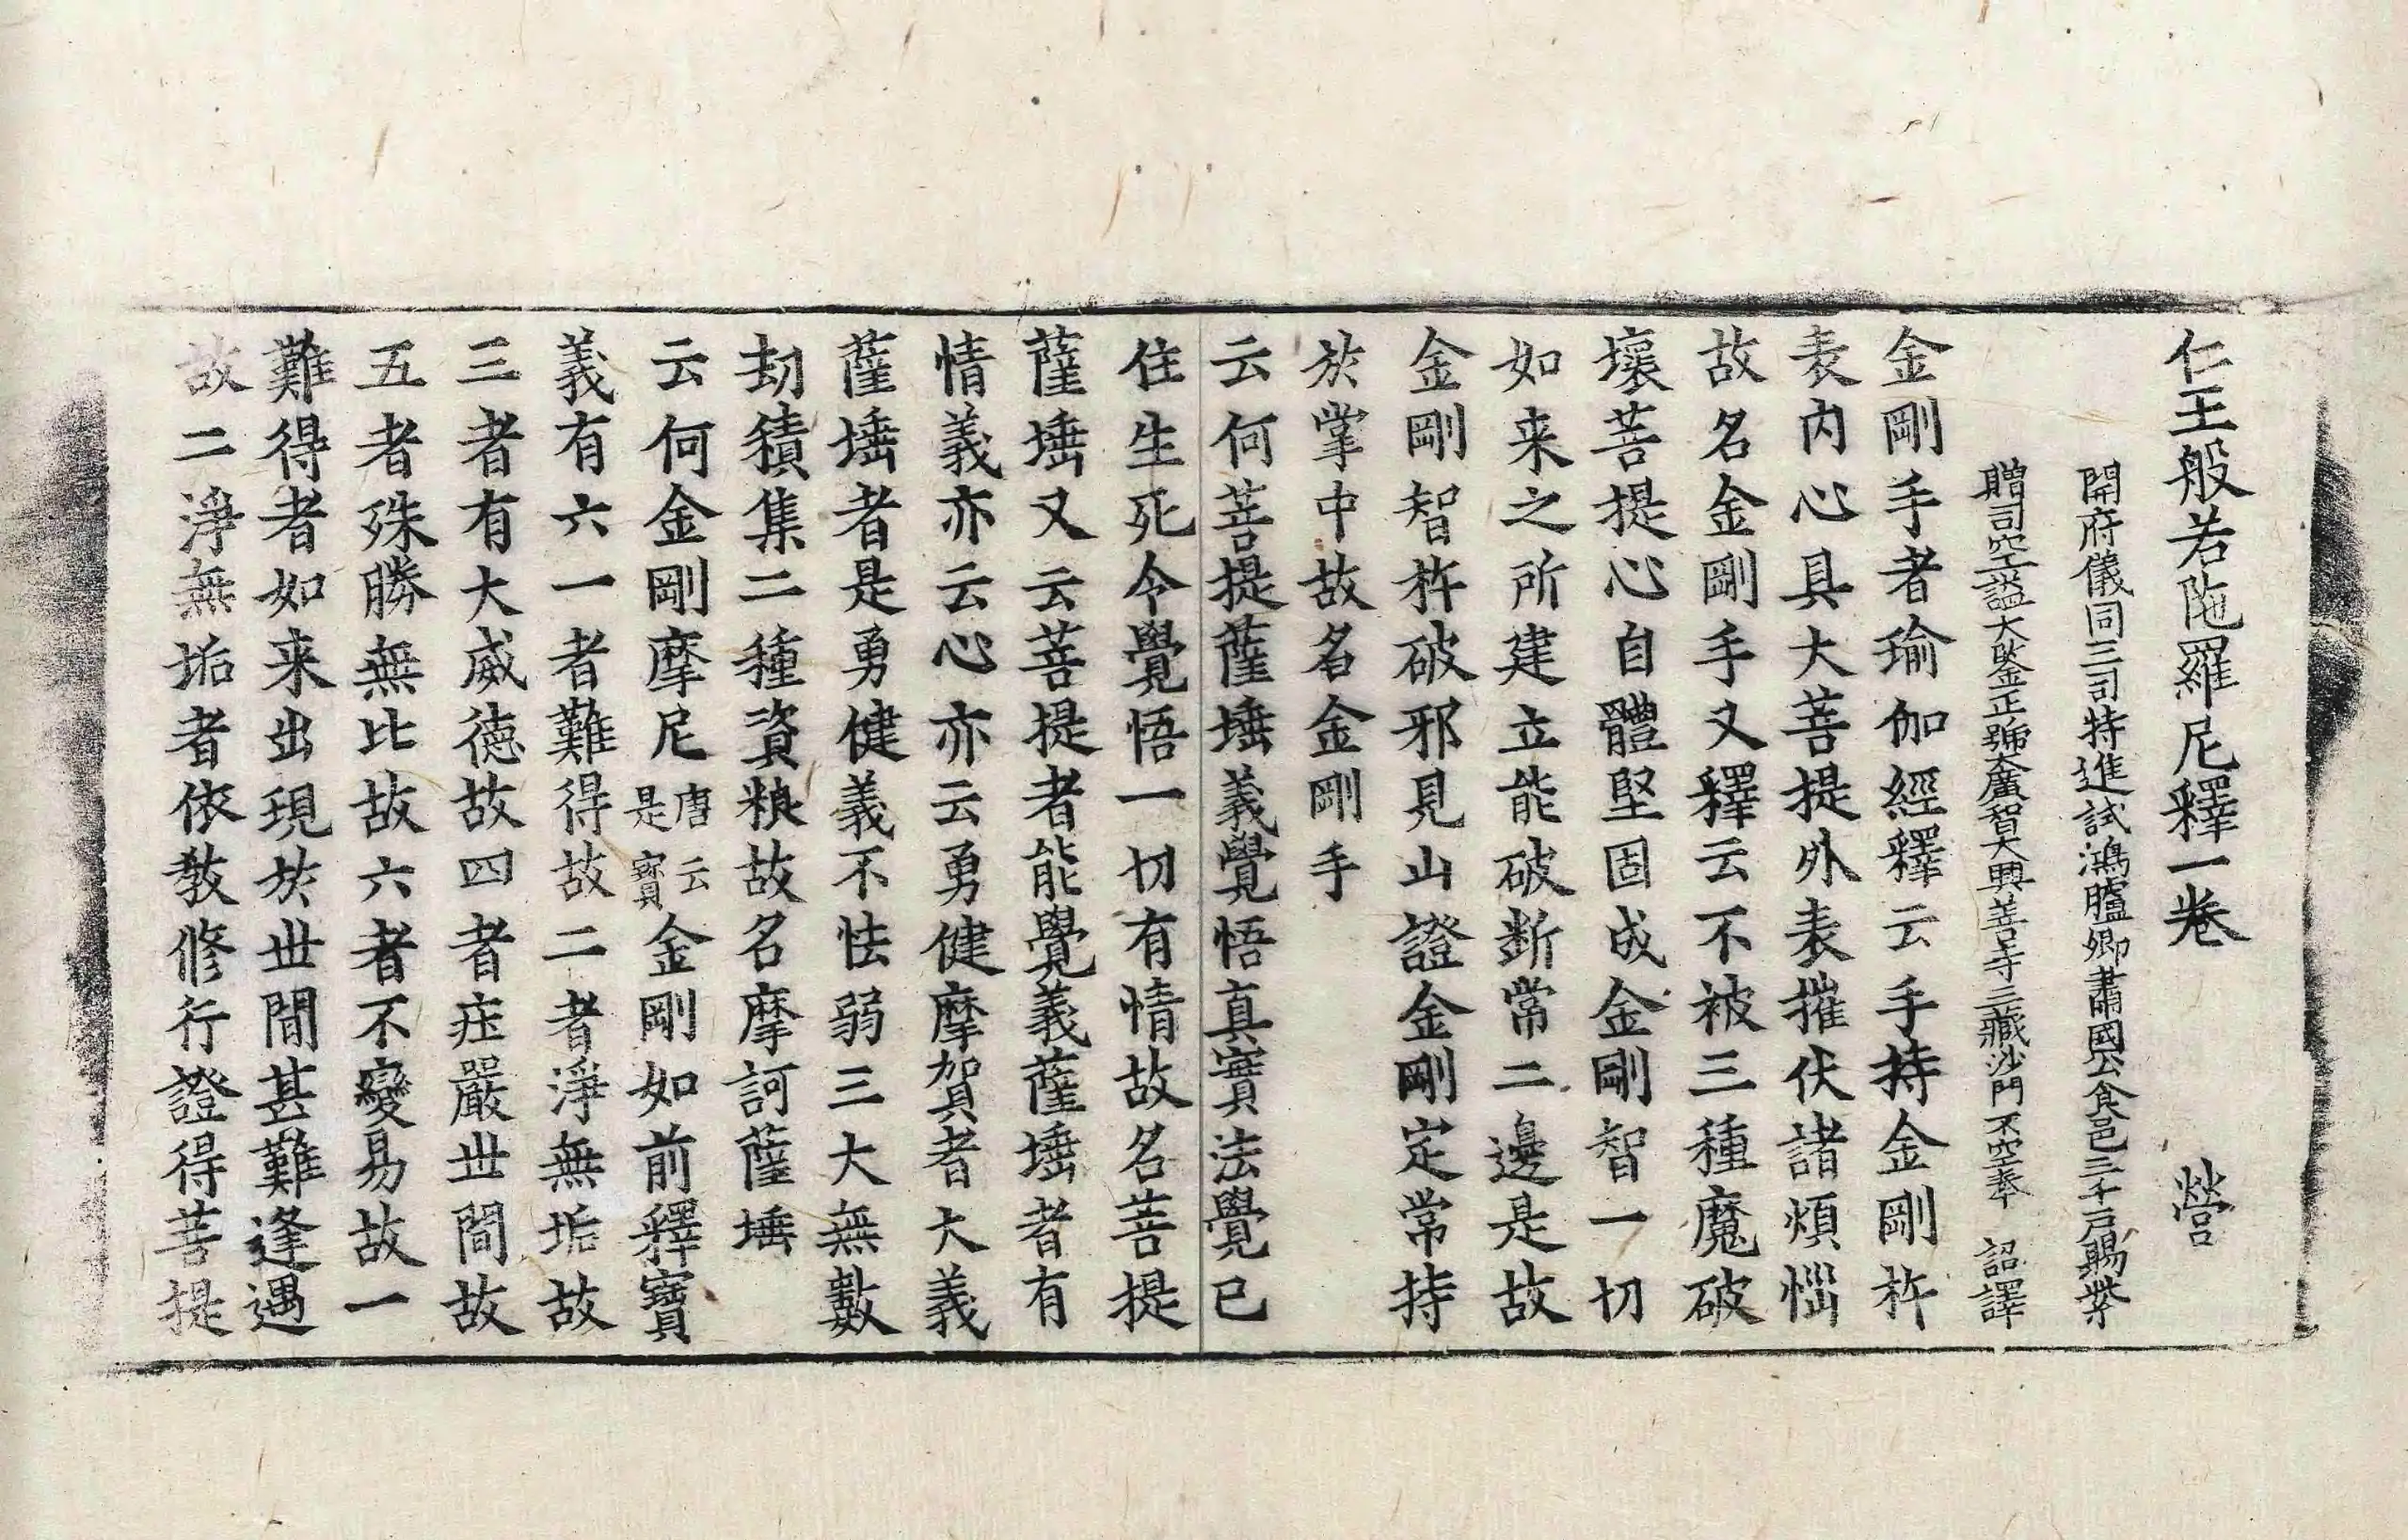 仁王般若陁羅尼釋一卷　營
開府儀同三司特進試鴻臚卿肅國公食邑三千戶賜紫
贈司空謚大鋻正號大廣智大興善寺三藏沙門不空奉　詔譯
金剛手者瑜伽經釋云手持金剛杵
表內心具大菩提外表摧伏諸煩惱
故名金剛手又釋云不被三種魔破
壞菩提心自體堅固成金剛智一切
如来之所建立能破斷常二邊是故
金剛智杵破邪見山證金剛定常持
於掌中故名金剛手
云何菩提薩埵義覺悟真實法覺已
住生死令覺悟一切有情故名菩提
薩埵又云菩提者能覺義薩埵者有
情義亦云心亦云勇健摩賀者大義
薩埵者是勇健義不怯弱三大無數
劫積集二種資粮故名摩訶薩埵
云何金剛摩尼唐云是寶金剛如前釋寶
義有六一者難得故二者淨無垢故
三者有大威德故四者庄嚴世間故
五者殊勝無比故六者不變易故一
難得者如来出現於世間甚難逢遇
故二淨無垢者依教修行證得菩提